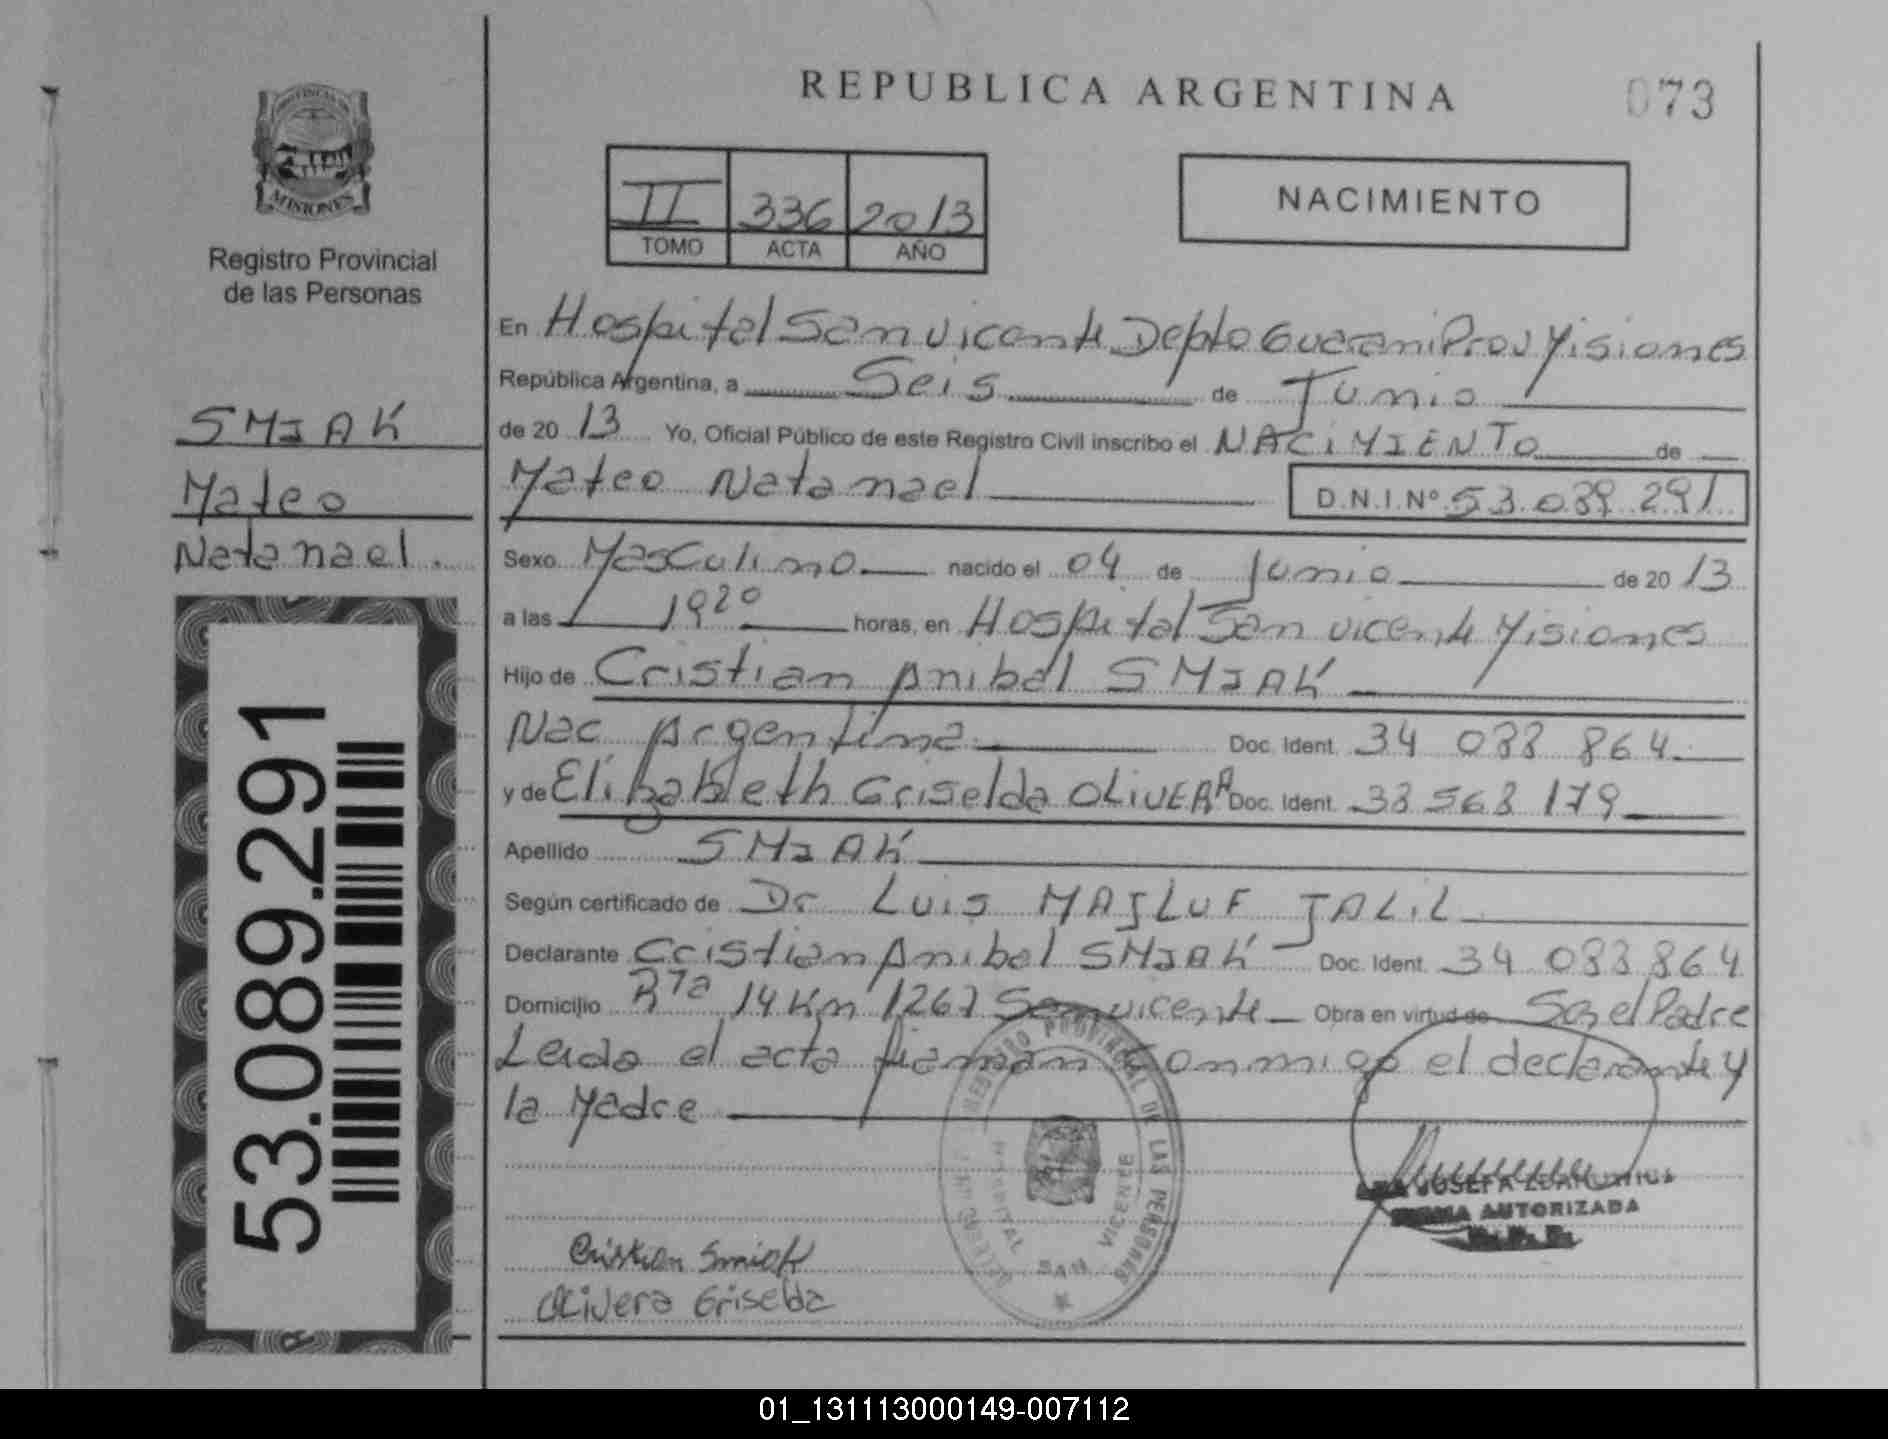 REPUBLICA ARGENTINA
073
PROVINCIA DE
MISIONES
Registro Provincial
de las Personas
II 336 2013
TOMO ACTA AÑO
NACIMIENTO
SMIAK
Mateo
Natanael.
53.089.291
En Hospital San Vicente Depto Guarani Prov Misiones
República Argentina, a Seis de Junio
de 20 13 Yo, Oficial Público de este Registro Civil inscribo el NACIMIENTO de
Mateo Natanael D.N.I.Nº 53.089.291
Sexo Masculino nacido el 04 de Junio de 20 13
a las 19 20 horas, en Hospital San Vicente Misiones
Hijo de Cristian Anibal SMIAK
Nac Argentina Doc. Ident. 34 088 864
y de Elizabeth Griselda OLIVERA Doc. Ident. 38 568 179
Apellido SMIAK
Según certificado de Dr LUIS MAJLUF JALIL
Declarante Cristian Anibal SMIAK Doc. Ident. 34 088 864
Domicilio Rta 14 Km 1267 San Vicente Obra en virtud de Ser el Padre
Leida el acta firman conmigo el declarante y
la Madre
REGISTRO PROVINCIAL DE LAS PERSONAS
HOSPITAL SAN VICENTE
JOSEFA
FIRMA AUTORIZADA
Cristian Smiak
Olivera Griselda
01_131113000149-007112